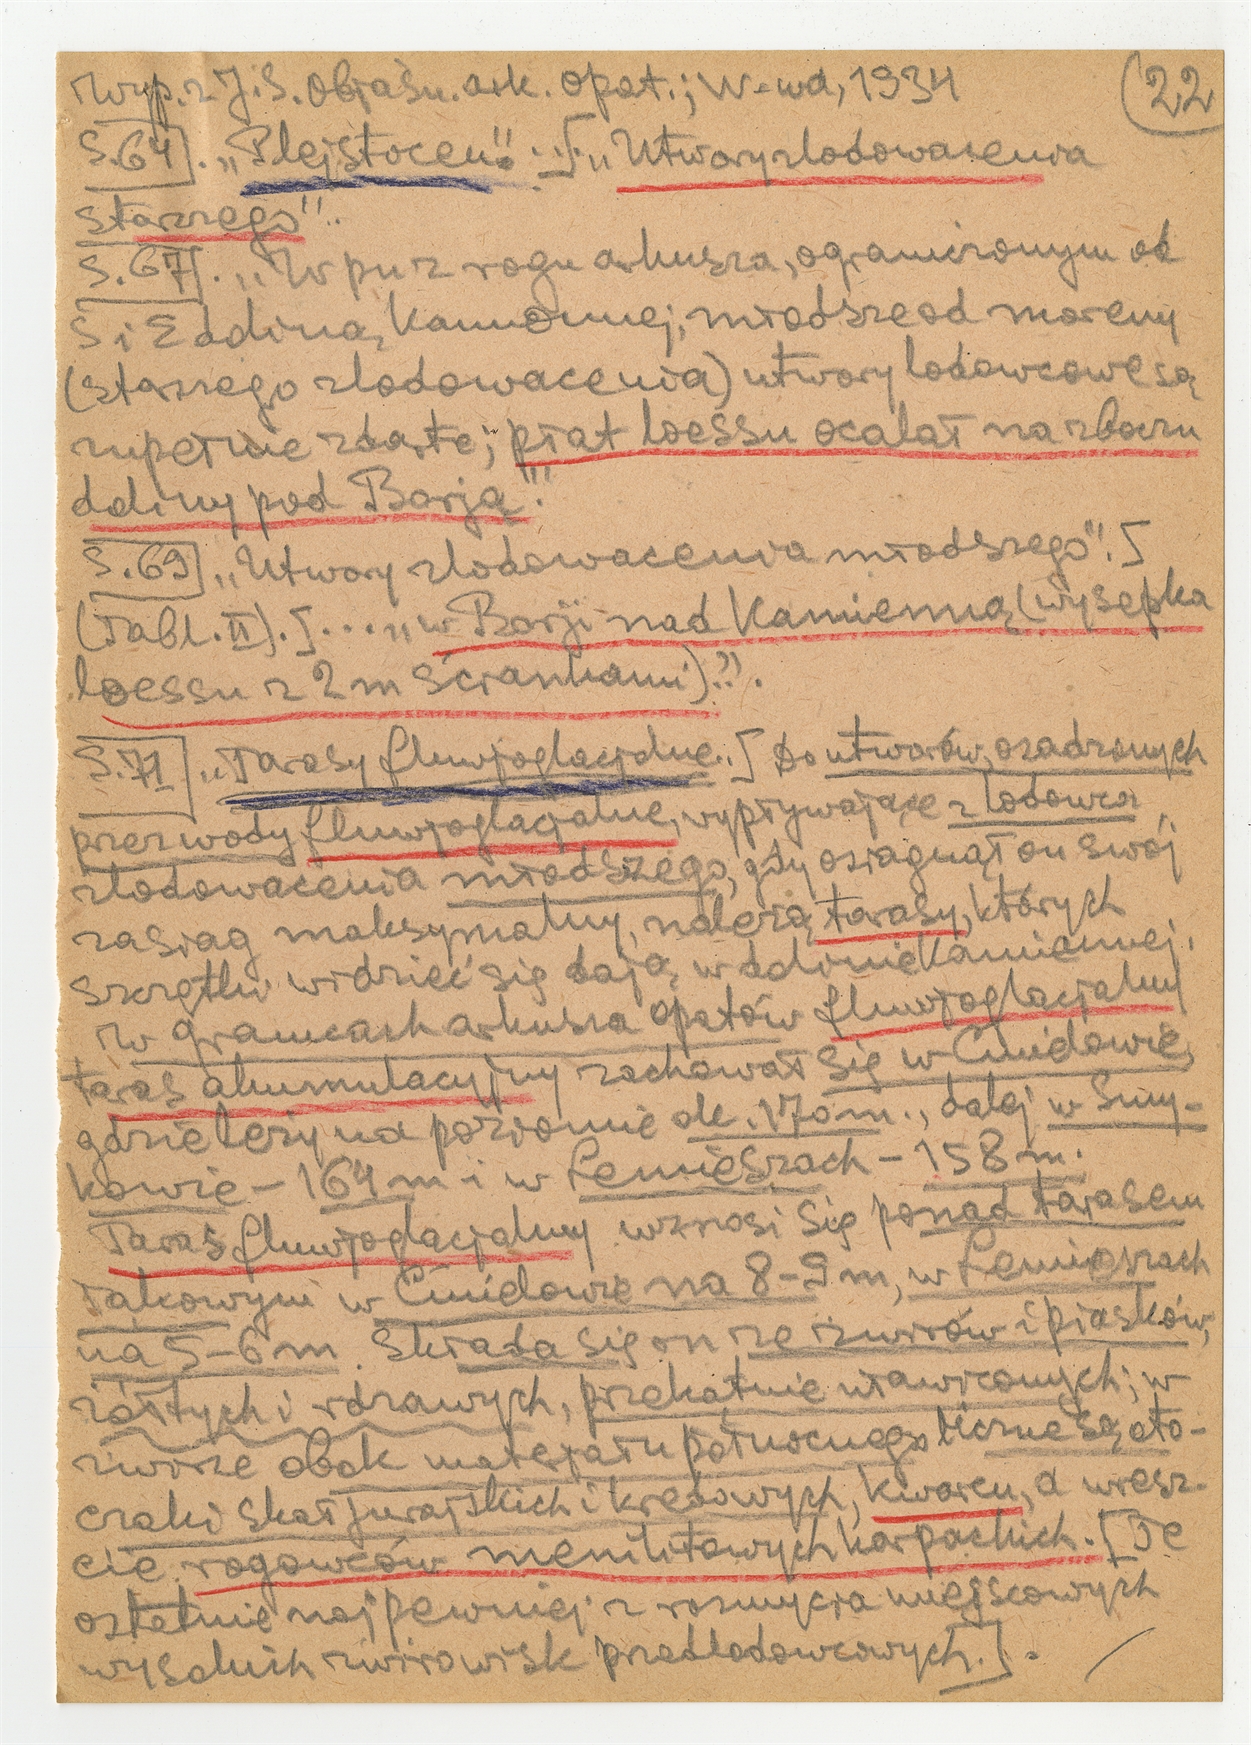 Wyp. z J. S. Objaśn. ark. Opat.; W-wa, 1934 (22
S. 64]. „Plejstocen". ...[„Utwory zlodowacenia
starszego".
S. 67]. „W pn z rogu arkusza, ograniczonym od
S i E doliną Kamiennej, młodsze od moreny
(starszego zlodowacenia) utwory lodowcowe są
zupełnie zdarte; płat loessu ocalał na zboczu
doliny pod Borją".
S. 69] „Utwory zlodowacenia młodszego". [
(Tabl. II). [.... „w Borji nad Kamienną (wysepka
loessu z 2 m ściankami)".
S. 71] „Tarasy fluwjoglacjalne. [Do utworów, osadzonych
przez wody fluwjoglacjalne, wypływające z lodowca
zlodowacenia młodszego, gdy osiągnął on swój
zasiąg maksymalny, należą tarasy, których
szczątki widzieć się dają w dolinie Kamiennej.
W granicach arkusza Opatów fluwjoglacjalny
taras akumulacyjny zachował się w Ćmielowie,
gdzie leży na poziomie ok. 170 m., dalej w Smy-
kowie – 164 m i w Lemieszach – 158 m.
Taras fluwjoglacjalny wznosi się ponad tarasem
łąkowym w Ćmielowie na 8–9 m, w Lemieszach
na 5–6 m. Składa się on ze żwirów i piasków,
żółtych i rdzawych, przekątnie uławiconych; w
żwirze obok materjału północnego liczne są oto-
czaki skał jurajskich i kredowych, kwarcu, a wresz-
cie rogowców menilitowych karpackich. [Te
ostatnie najpewniej z rozmycia miejscowych
wysokich żwirowisk przedlodowcowych.].